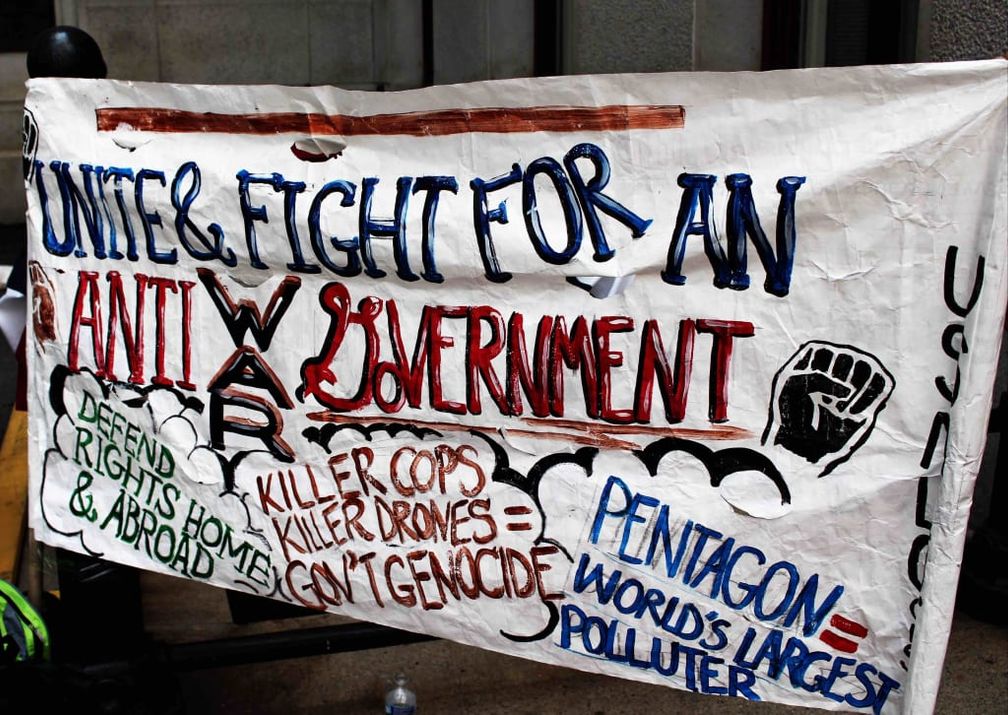 UNITE & FIGHT FOR AN
ANTI WAR GOVERNMENT
DEFEND
RIGHTS HOME
& ABROAD
KILLER COPS
KILLER DRONES =
GOV'T GENOCIDE
PENTAGON =
WORLD'S LARGEST
POLLUTER